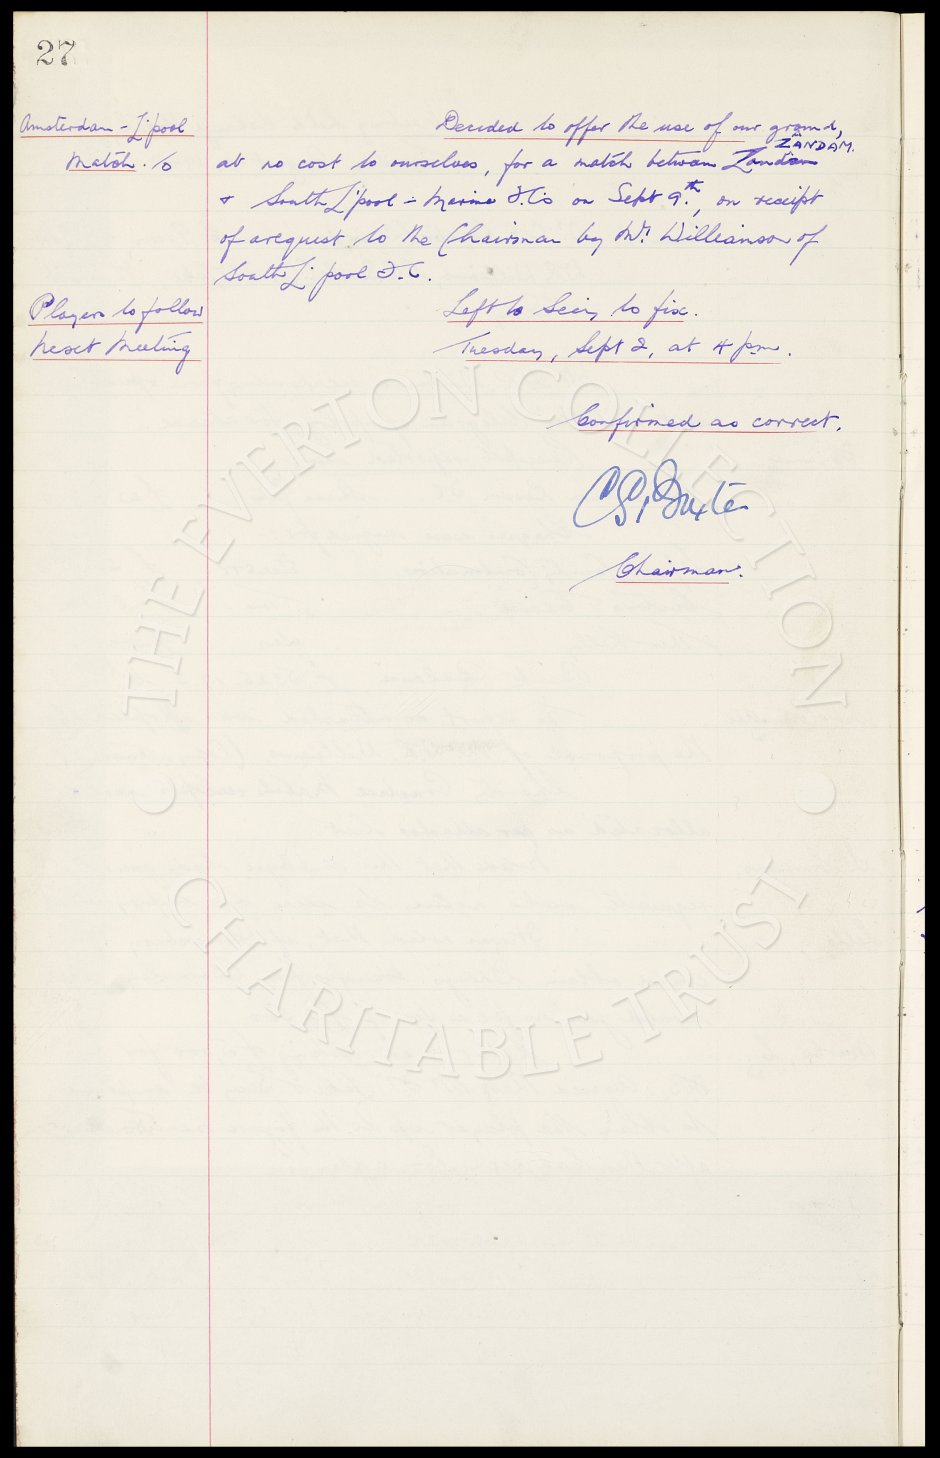 27
Amsterdam - L'pool
Match.
Decided to offer the use of our ground,
ZANDAM.
at no cost to ourselves, for a match between Zandam
& South L'pool - Marine F.C's on Sept 9th, on receipt
of a request to the Chairman by Mr Williamson of
South L'pool F.C.
Players to follow
Left to Secy to fix.
Next Meeting
Tuesday, Sept 2, at 4 pm.
Confirmed as correct.
C S Baxter
Chairman.
THE EVERTON COLLECTION
CHARITABLE TRUST